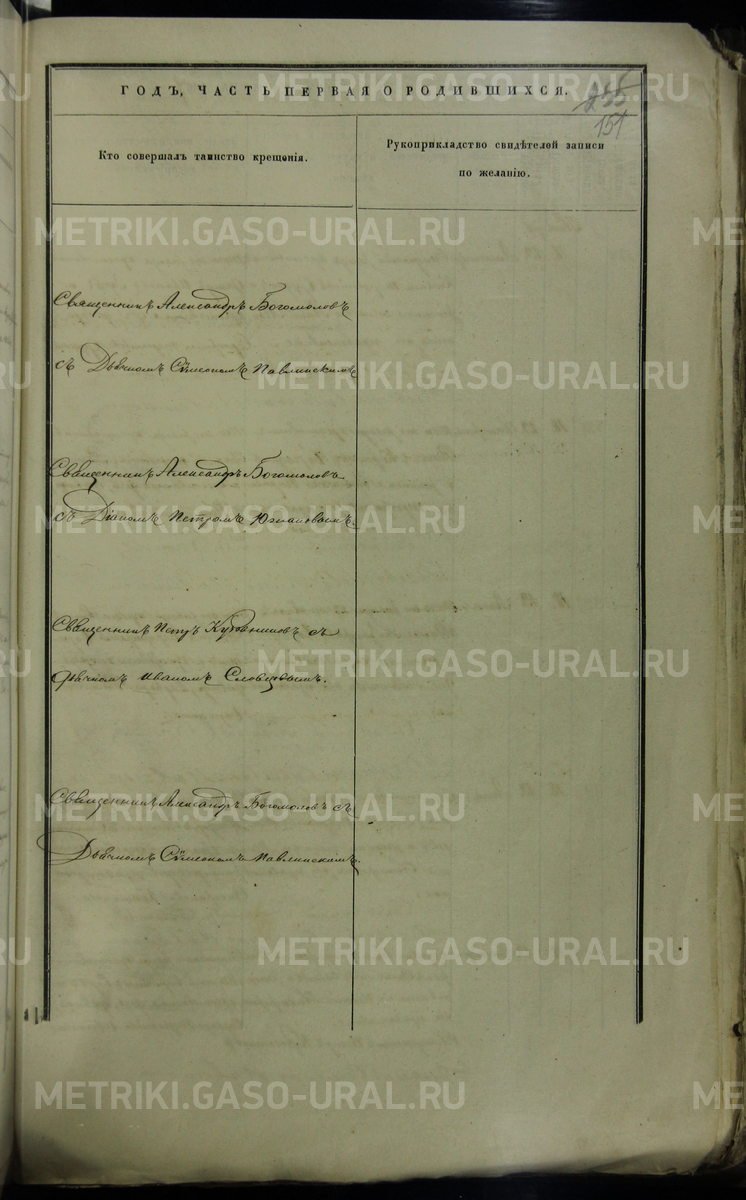 ГОДЪ, ЧАСТЬ ПЕРВАЯ О РОДИВШИХСЯ.
151
Кто совершалъ таинство крещенія.
Рукоприкладство свидѣтелей записи
по желанію.
Священникъ Александръ Богомоловъ
съ Дьячкомъ Сѵмеономъ Павлинскимъ
Священникъ Александръ Богомоловъ
съ Діакномъ Петромъ
Священникъ Петръ съ
дьячкомъ Иваномъ Словцовымъ.
Священникъ Александръ Богомоловъ съ
Дьячкомъ Сѵмеономъ Павлинскимъ.
METRIKI.GASO-URAL.RU